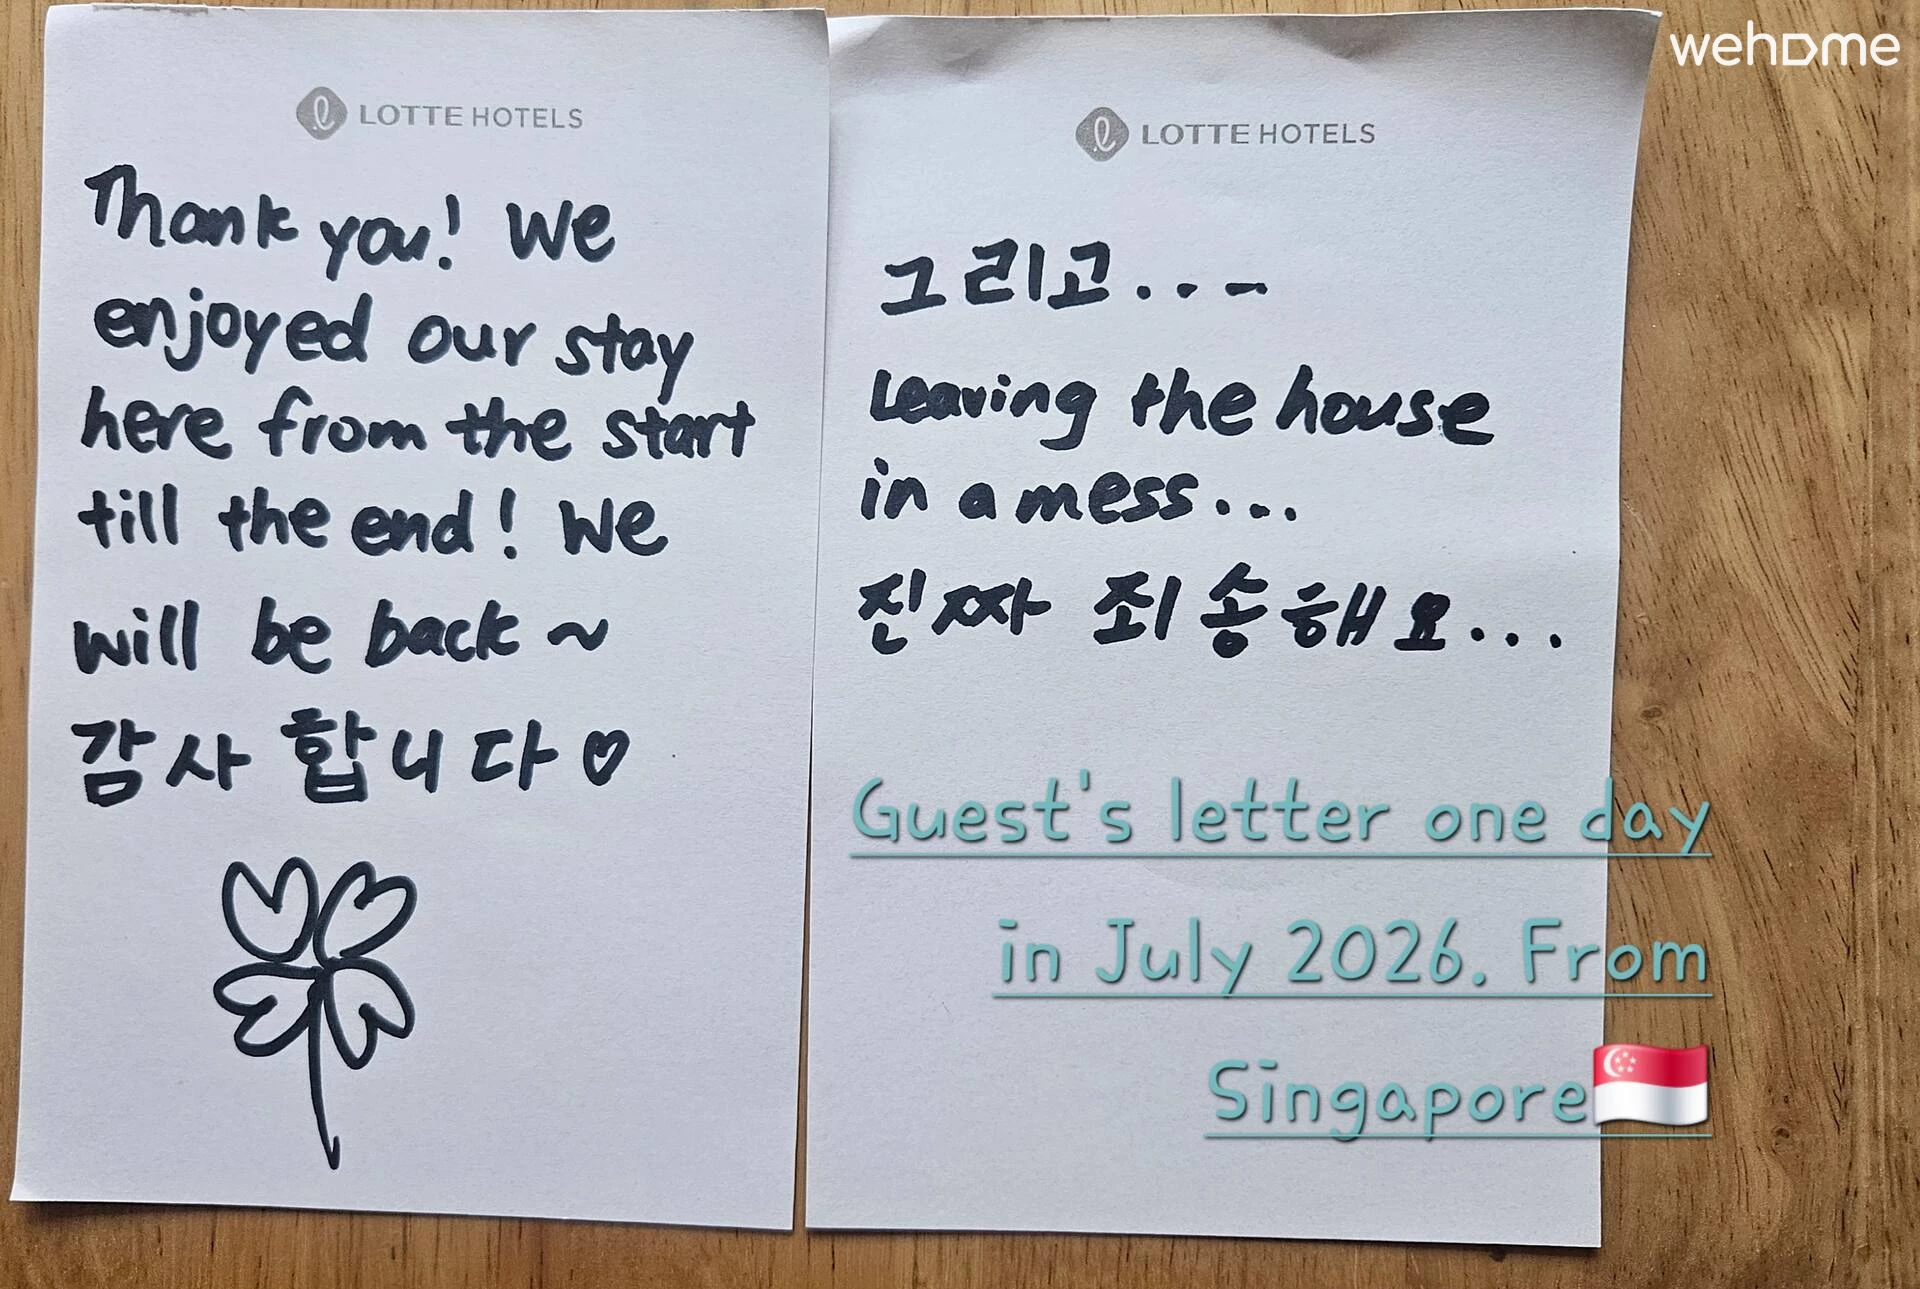 LOTTE HOTELS
Thank you! We
enjoyed our stay
here from the start
till the end! We
will be back ~
감사합니다♡
LOTTE HOTELS
그리고...-
Leaving the house
in a mess...
진짜 죄송해요...
Guest's letter one day
in July 2026. From
Singapore🇸🇬
wehome